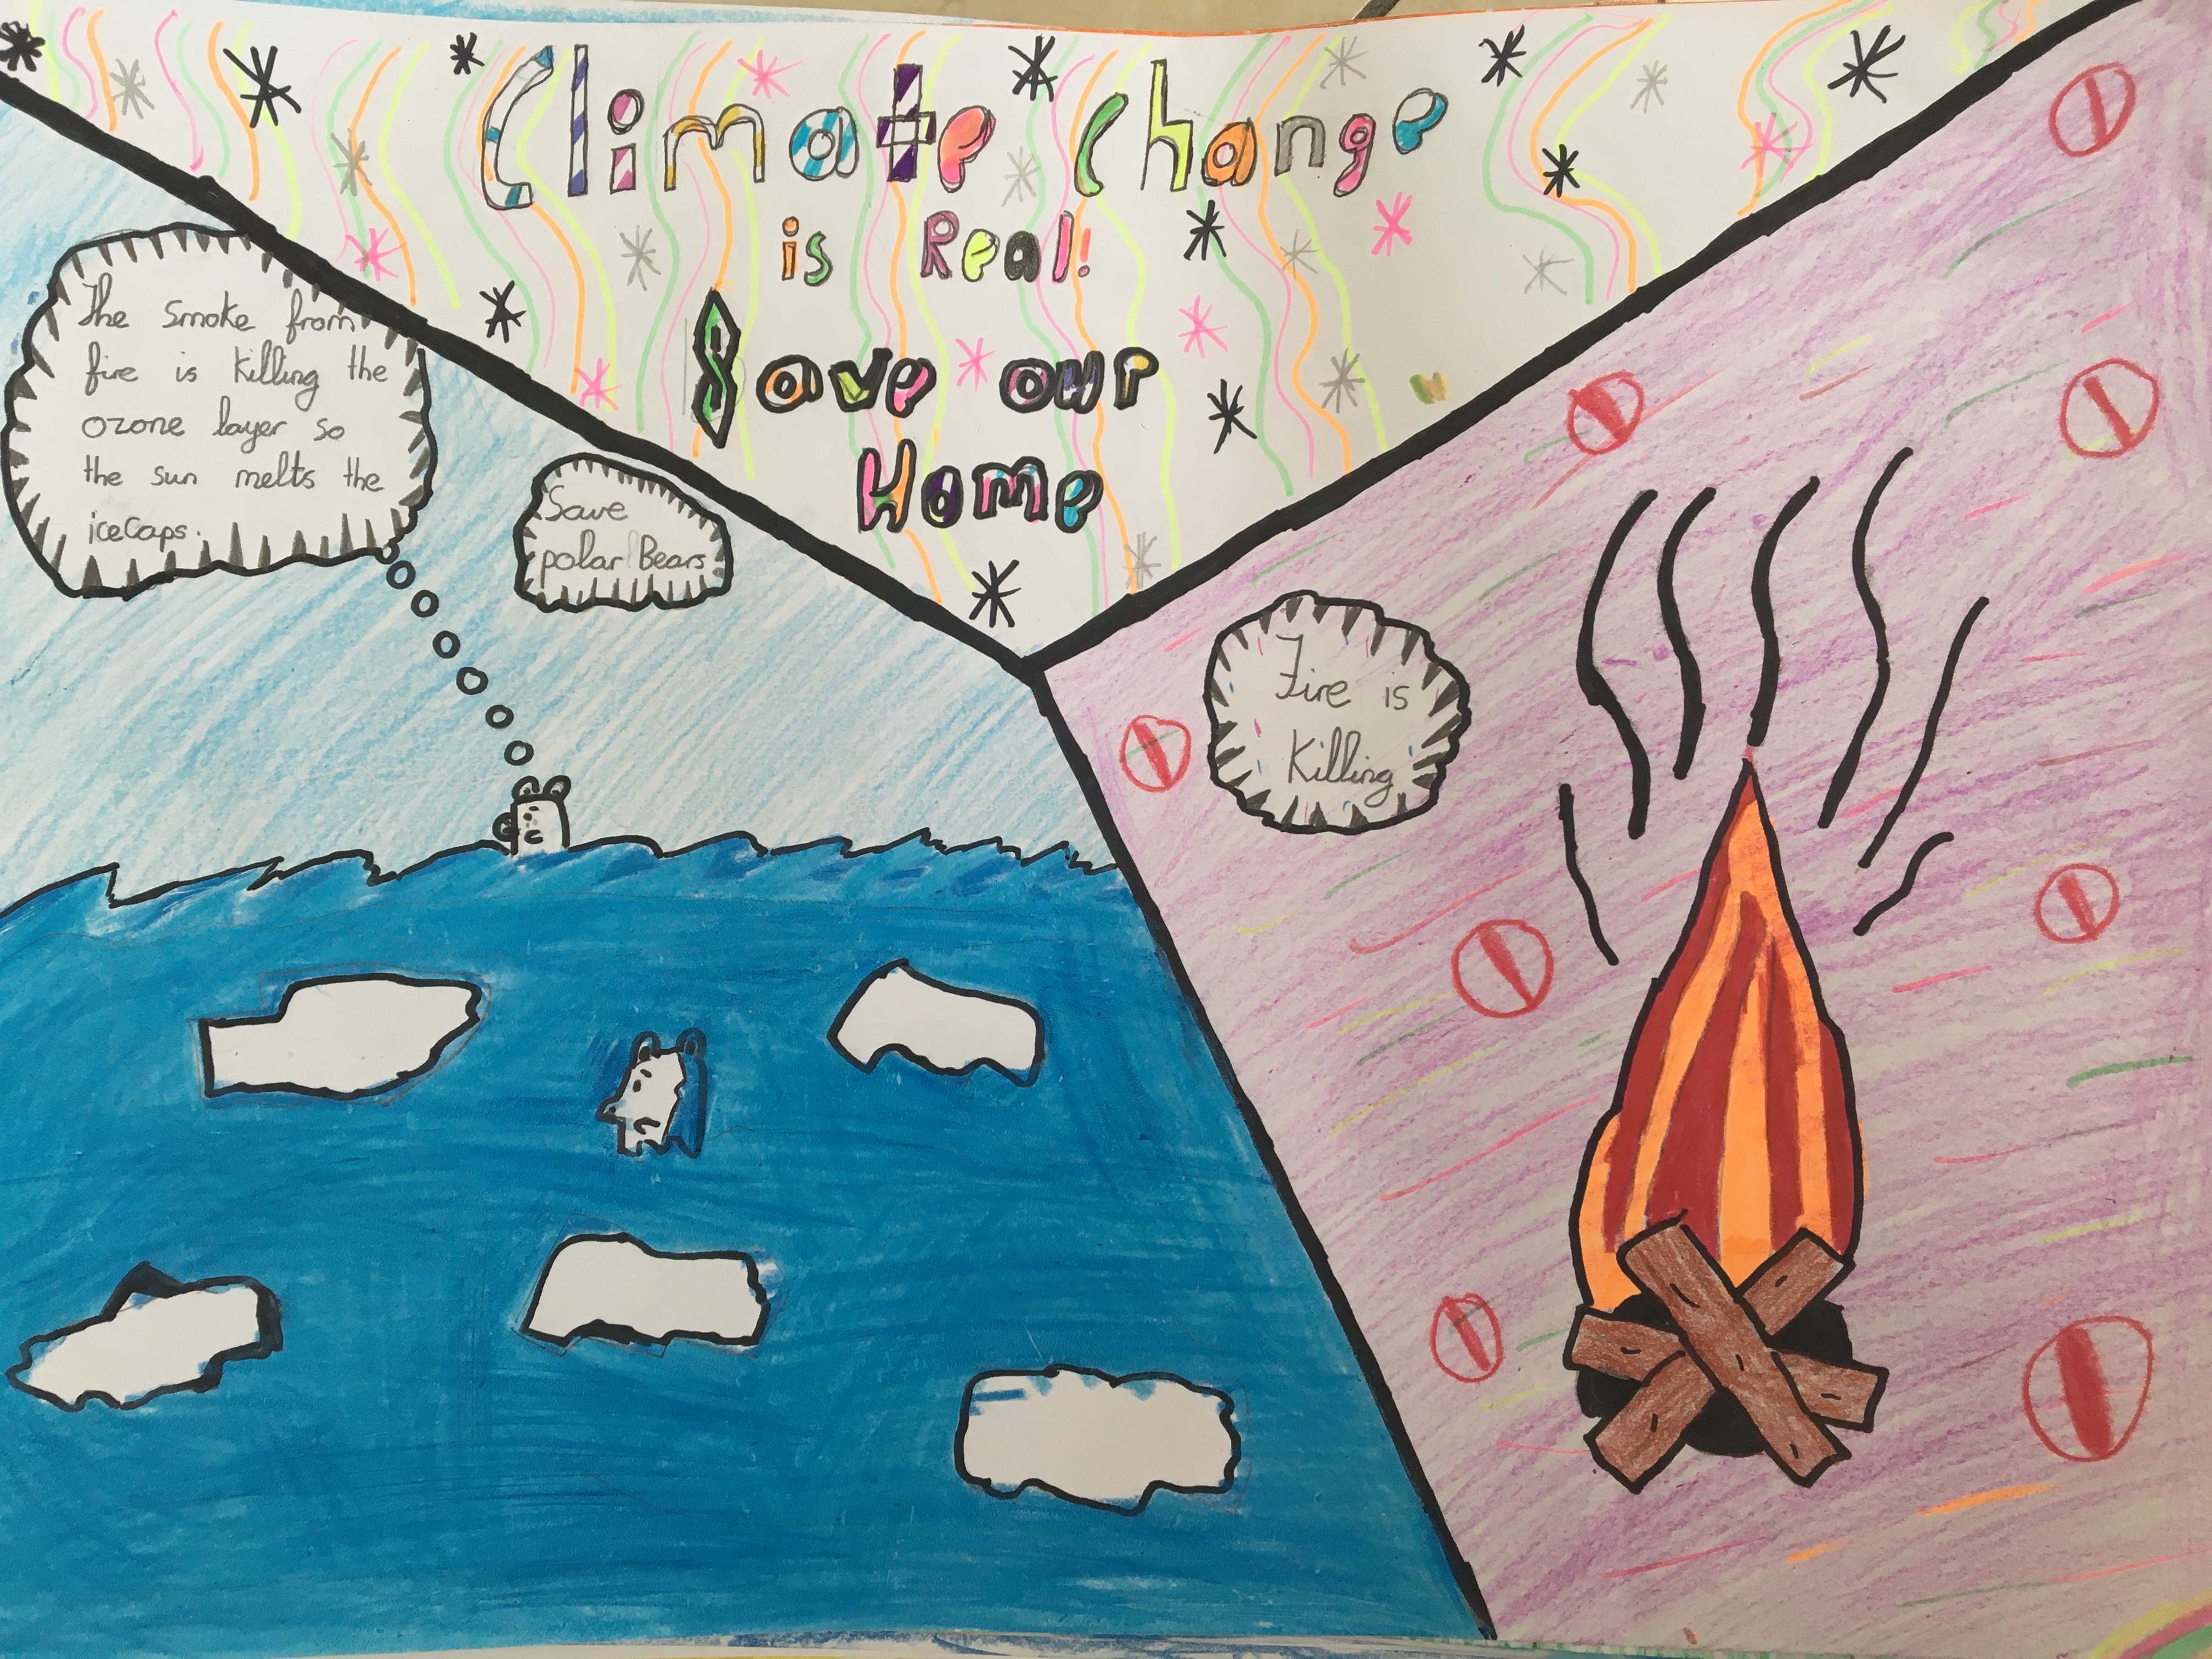 Climate change
is Real!
Save our
Home
The smoke from
fire is killing the
ozone layer so
the sun melts the
icecaps.
Save
polar Bears
Fire is
Killing